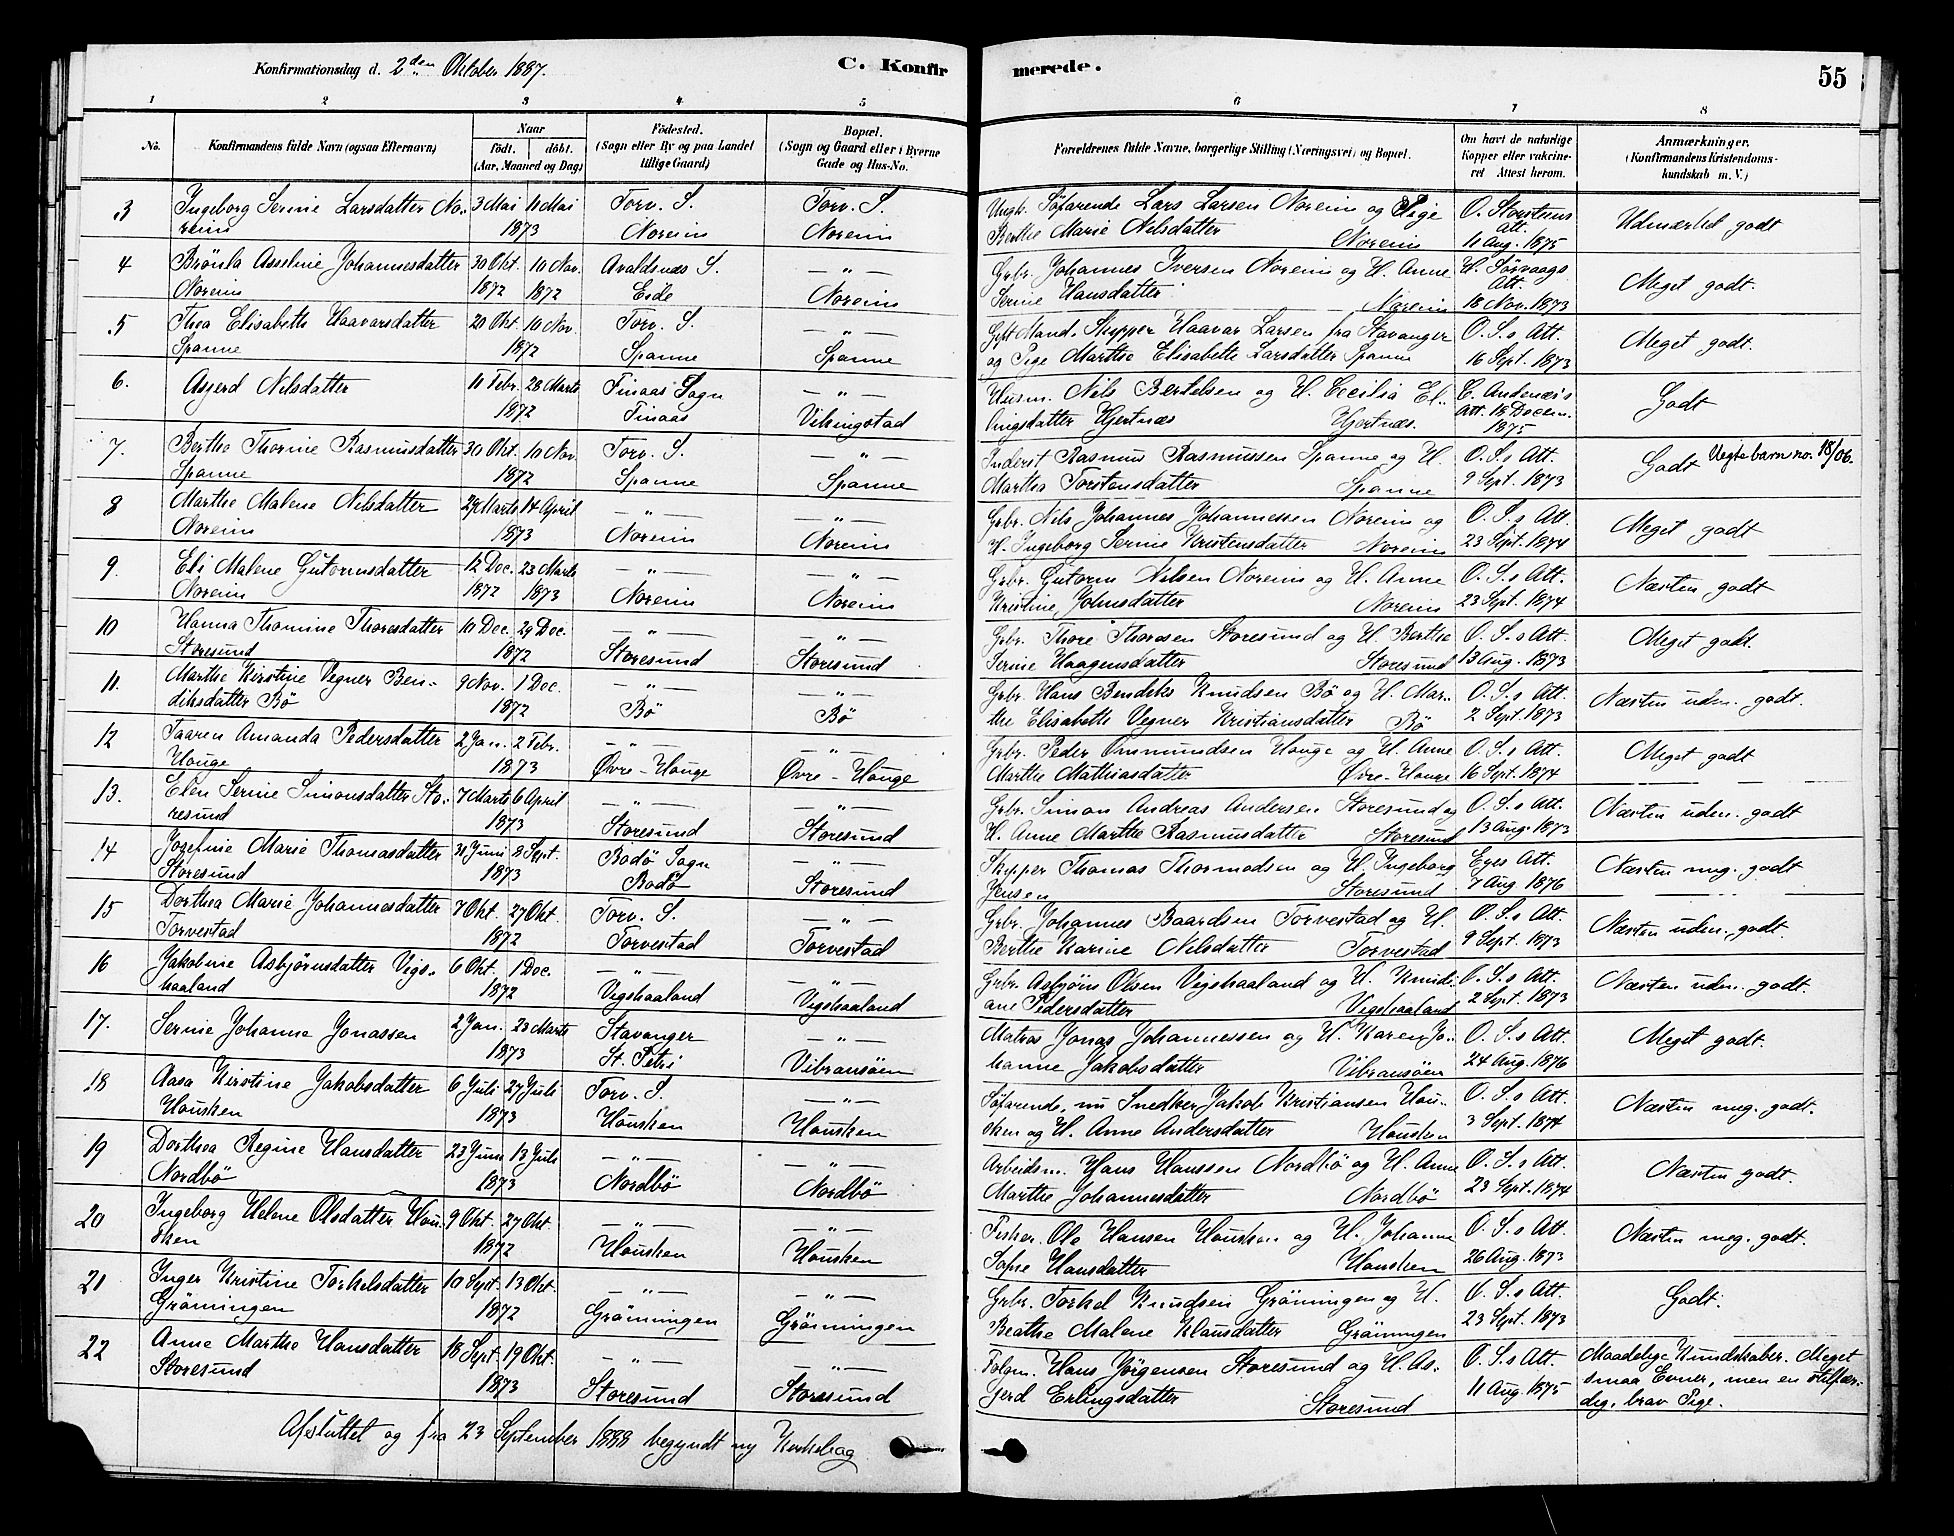 Konfirmationsdag d. 2den Oktober 1887.
C. Konfirmerede.
55
1 2 3 4 5 6 7 8
No.
Konfirmandens fulde Navn (ogsaa Efternavn)
Naar
födt. döbt.
(Aar, Maaned og Dag)
Födested.
(Sogn eller By og paa Landet
tillige Gaard)
Bopæl.
(Sogn og Gaard eller i Byerne
Gade og Hus-No.
Forældrenes fulde Navne, borgerlige Stilling (Næringsvei) og Bopæl.
Om havt de naturlige
Kopper eller vakcine-
ret Attest herom.
Anmærkninger.
(Konfirmandens Kristendoms-
kundskab m. V.)
3 Ingeborg Serine Larsdatter No- 3 Mai 11 Mai Torv. S. Torv. S. Ungk. Söfarende Lars Larsen Noreim og Pige O. Storsteens
reim 1873 Noreim Noreim Berthe Marie Nilsdatter Noreim Att. 11 Aug. 1875 Udmærket godt
4 Brönla Asseline Johannesdatter 30 Okt. 10 Nov. Avaldsnæs S. — " — Grbr. Johannes Iversen Noreim og H. Anne H. Sörvaags
Noreim 1872 1872 Eide Noreim Serine Hansdatter Noreim Att. 18 Nov. 1873 Meget godt.
5 Thea Elisabeth Haavarsdatter 20 Okt. 10 Nov. Torv. S. — " — Gift Mand. Skipper Haavar Larsen fra Stavanger O. S.s Att.
Spanne 1872 Spanne Spanne og Pige Marthe Elisabeth Larsdatter Spanne 16 Sept. 1873 Meget godt.
6. Asgerd Nilsdatter 11 Febr. 28 Marts Finaas Sogn — " — Husm. Nils Bertelsen og H. Cecilia El- C. Andenæs's
1872 Finaas Vikingstad lingsdatter Hjertnæs Hjertnæs. Att. 18 Decem. 1875 Godt
7. Berthe Thorine Rasmusdatter 30 Okt. 10 Nov. Torv. S. — " — Inderst Rasmus Rasmussen Spanne og H. O. S.s Att.
Spanne 1872 Spanne Spanne Martha Torstensdatter Spanne 9 Sept. 1873 Godt Uegte barn no. 18/06.
8 Marthe Malene Nilsdatter 29 Marts 14 April — " — — " — Grbr. Nils Johannes Johannessen Noreim og O. S.s Att.
Noreim 1873 Noreim Noreim H. Ingeborg Serine Kristensdatter Noreim 23 Sept. 1874 Meget godt
9 Eli Malene Gutormsdatter 12 Dec. 23 Marts — " — — " — Grbr. Gutorm Nilsen Noreim og H. Anne O. S.s Att.
Noreim 1872 1873 Noreim Noreim Kristine Johnsdatter Noreim 23 Sept. 1874 Næsten godt
10 Hanna Thomine Thoresdatter 10 Dec. 29 Dec. — " — — " — Grbr. Thore Thorsen Storesund og H. Berthe O. S.s Att.
Storesund 1872 Storesund Storesund Serine Haagensdatter Storesund 13 Aug. 1873 Meget godt.
11. Marthe Kirstine Vegner Ben- 9 Nov. 1 Dec. — " — — " — Grbr. Hans Bendiks Knudsen Bö og H. Mar- O. S.s Att.
diksdatter Bö 1872 Bö Bö the Elisabeth Vegner Kristiansdatter Bö 2 Sept. 1873 Næsten uden. godt.
12 Taaren Amanda Pedersdatter 2 Jan. 2 Febr. — " — — " — Grbr. Peder Ommundsen Houge og H. Anne O. S.s Att.
Houge 1873 Øvre-Houge Øvre-Houge Marthe Mathiasdatter Øvre-Houge 16 Sept. 1874 Meget godt
13. Elen Serine Simonsdatter Sto- 7 Marts 6 April — " — — " — Grbr. Simon Andreas Andersen Storesund og O. S.s Att.
resund 1873 Storesund Storesund H. Anne Marthe Rasmusdatter Storesund 13 Aug. 1873 Næsten uden. godt
14 Josefine Marie Thomasdatter Juni 8 Sept. Bodø Sogn — " — Skipper Thomas Thormodsen og H. Ingeborg Eyes Att.
Storesund 1873 Bodø Storesund Jensen Storesund 7 Aug 1876 Næsten meg. godt
15 Dorthea Marie Johannesdatter 7 Okt. 27 Okt. Torv. S. — " — Grbr. Johannes Baardsen Torvestad og H. O. S.s Att.
Torvestad 1872 Torvestad Torvestad Berthe Karine Nilsdatter Torvestad 9 Sept. 1873 Næsten uden. godt.
16 Jakobine Asbjörnsdatter Vigs- 6 Okt. 1 Dec. — " — — " — Grbr. Asbjörn Olsen Vigshaaland og H. Knudi- O. S.s Att.
haaland 1872 Vigshaaland Vigshaaland ane Pedersdatter Vigshaaland 2 Sept. 1873 Næsten uden. godt.
17. Serine Johanne Jonassen 2 Jan. 23 Marts Stavanger — " — Matros Jonas Johannessen og H. Karen Jo- O. S.s Att.
1873 St. Petri Vibransöen hanne Jakobsdatter Vibransöen 24 Aug. 1876 Meget godt.
18 Aasa Kirstine Jakobsdatter 6 Juli 27 Juli Torv. S. — " — Söfarende, nu Snedker Jakob Kristiansen Hou- O. S.s Att.
Housken 1873 Housken Housken sken og H. Anne Andersdatter Housken 3 Sept. 1874 Næsten meg. godt.
19 Dorthea Regine Hansdatter 23 Juni 13 Juli — " — — " — Arbeidsm. Hans Hanssen Nordbö og H. Anne O. S.s Att.
Nordbö 1873 Nordbö Nordbö Marthe Johannesdatter Nordbö 23 Sept. 1874 Næsten godt.
20 Ingeborg Helene Olsdatter Hou- 9 Okt. 27 Okt. — " — — " — Fisker. Ole Hansen Housken og H. Johanne O. S.s Att.
sken 1872 Housken Housken Sofie Hansdatter Housken 26 Aug. 1873 Næsten meg. godt.
21 Inger Kristine Torkelsdatter 10 Sept. 13 Okt. — " — — " — Grbr. Torkel Knudsen Gröningen og H. O. S.s Att.
Gröningen 1872 Gröningen Gröningen Beathe Malene Klausdatter Gröningen 23 Sept. 1873 Godt.
22 Anne Marthe Hansdatter 18 Sept. 19 Okt. — " — — " — Hans Jörgensen Storesund og H. As- O. S.s Att. Maadelige Kundskaber. Meget
Storesund 1873 Storesund Storesund gerd Erlingsdatter Storesund 11 Aug. 1875 smaa Evner, men en stilfær-
dig, brav Pige.
Afsluttet og fra 23 September 1888 begyndt ny Kirkebog